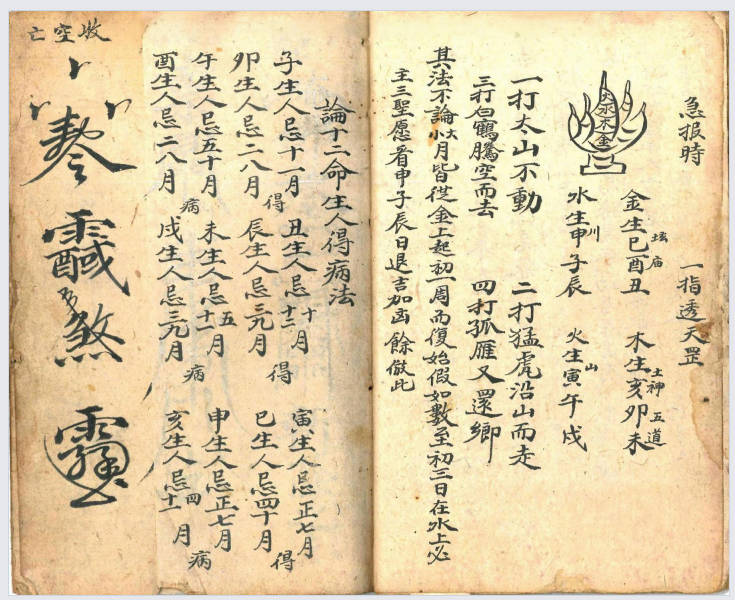 急报時 一指透天罡
水木金
金生巳酉丑 坛庙 木生亥卯未 土神 五道
水生申子辰 川 火生寅午戌 山
一打太山不動 二打猛虎沿山而走
三打白鶴騰空而去 四打孤雁又還鄉
其法不論大小月皆從金上起初一周而復始假如數至初三日在水上必
主三聖愿看申子辰日退吉加凶餘倣此
論十二命生人得病法
子生人忌十一月得 丑生人忌十十二月得 寅生人忌正七月得
卯生人忌二八月 辰生人忌三九月 巳生人忌四十月
午生人忌五十月病 未生人忌五十一月病 申生人忌正七月病
酉生人忌二八月 戌生人忌三九月 亥生人忌四十一月
收空亡
煞